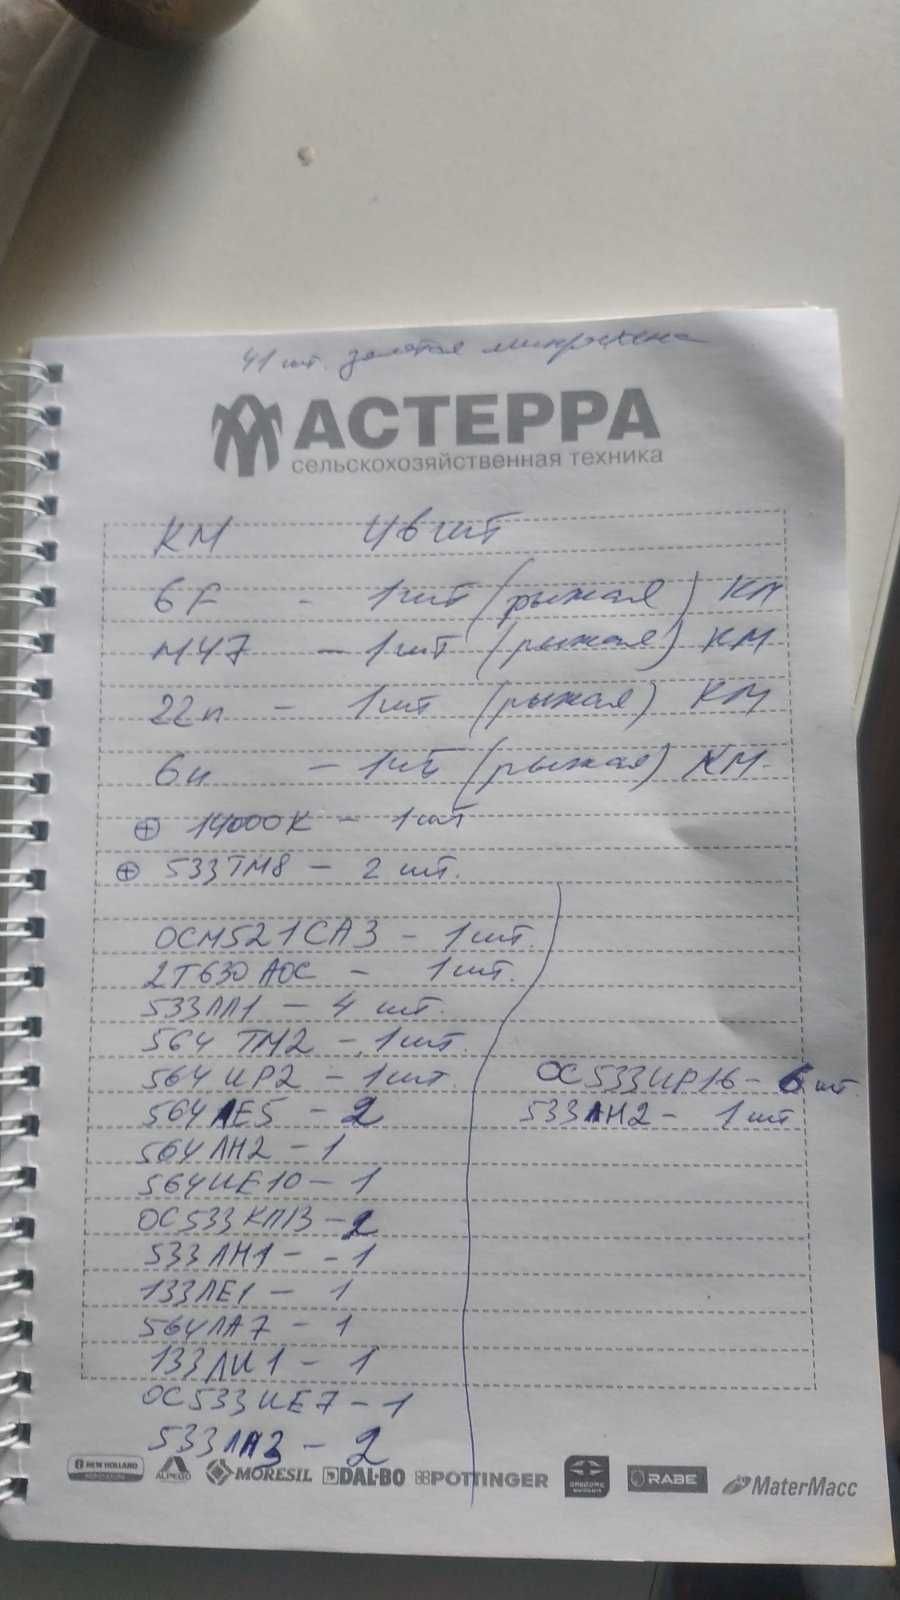 41 шт. золотая микросхема
АСТЕРРА
сельскохозяйственная техника
КМ 46 шт
6F - 1 шт (рыжая) КМ
М47 - 1 шт (рыжая) КМ
22п - 1 шт (рыжая) КМ
6и - 1 шт (рыжая) КМ
⊕ 14000К - 1 шт
⊕ 533ТМ8 - 2 шт.
ОСМ521СА3 - 1 шт.
2Т630АОС - 1 шт.
533ЛЛ1 - 4 шт.
564 ТМ2 - 1 шт.
564ИР2 - 1 шт.
564ЛЕ5 - 2
564ЛН2 - 1
564ИЕ10 - 1
ОС533КП13 - 2
533ЛН1 - 1
133ЛЕ1 - 1
564ЛА7 - 1
133ЛИ1 - 1
ОС533ИЕ7 - 1
533ЛА3 - 2
ОС533ИР16 - 6 шт
533ЛН2 - 1 шт
NEW HOLLAND
ALPEGO
MORESIL
DAL-BO
PÖTTINGER
RABE
MaterMacc